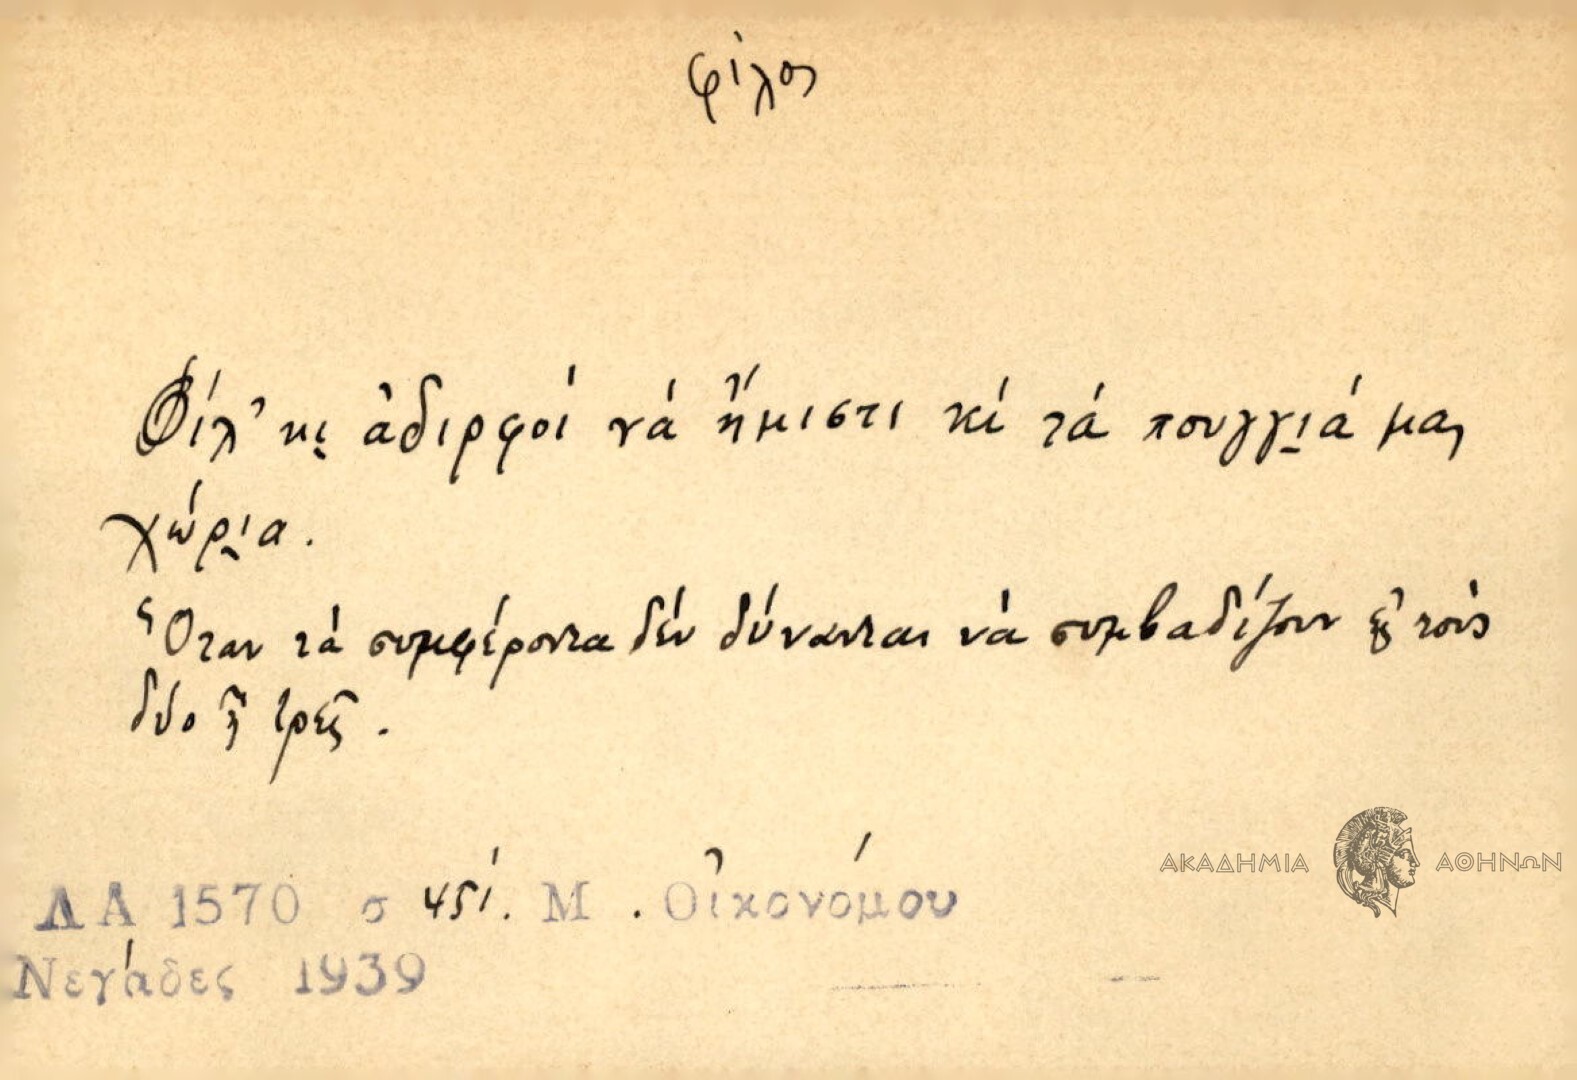 φίλος
Φίλ' κι̮ ἀδιρφοὶ νἀ ἤμιστι κὶ τὰ πουγγι̮ά μας
χώρι̮α.
Ὅταν τὰ συμφέροντα δὲν δύνανται νὰ συμβαδίζουν εἰς τοὺς
δύο ἢ τρεῖς.
ΛΑ 1570 σ 451. Μ. Οἰκονόμου
Νεγάδες 1939
ΑΚΑΔΗΜΙΑ ΑΘΗΝΩΝ